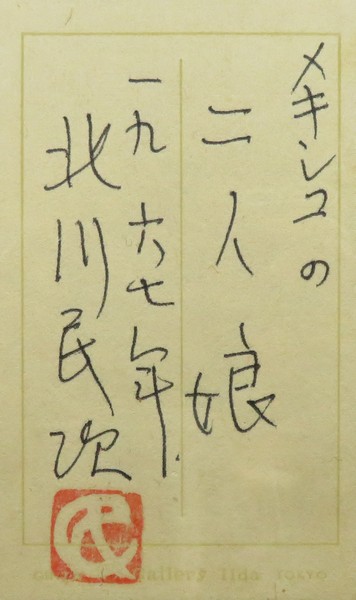 メキシコの
二人娘
一九六七年
北川民次
Gallery Iida TOKYO